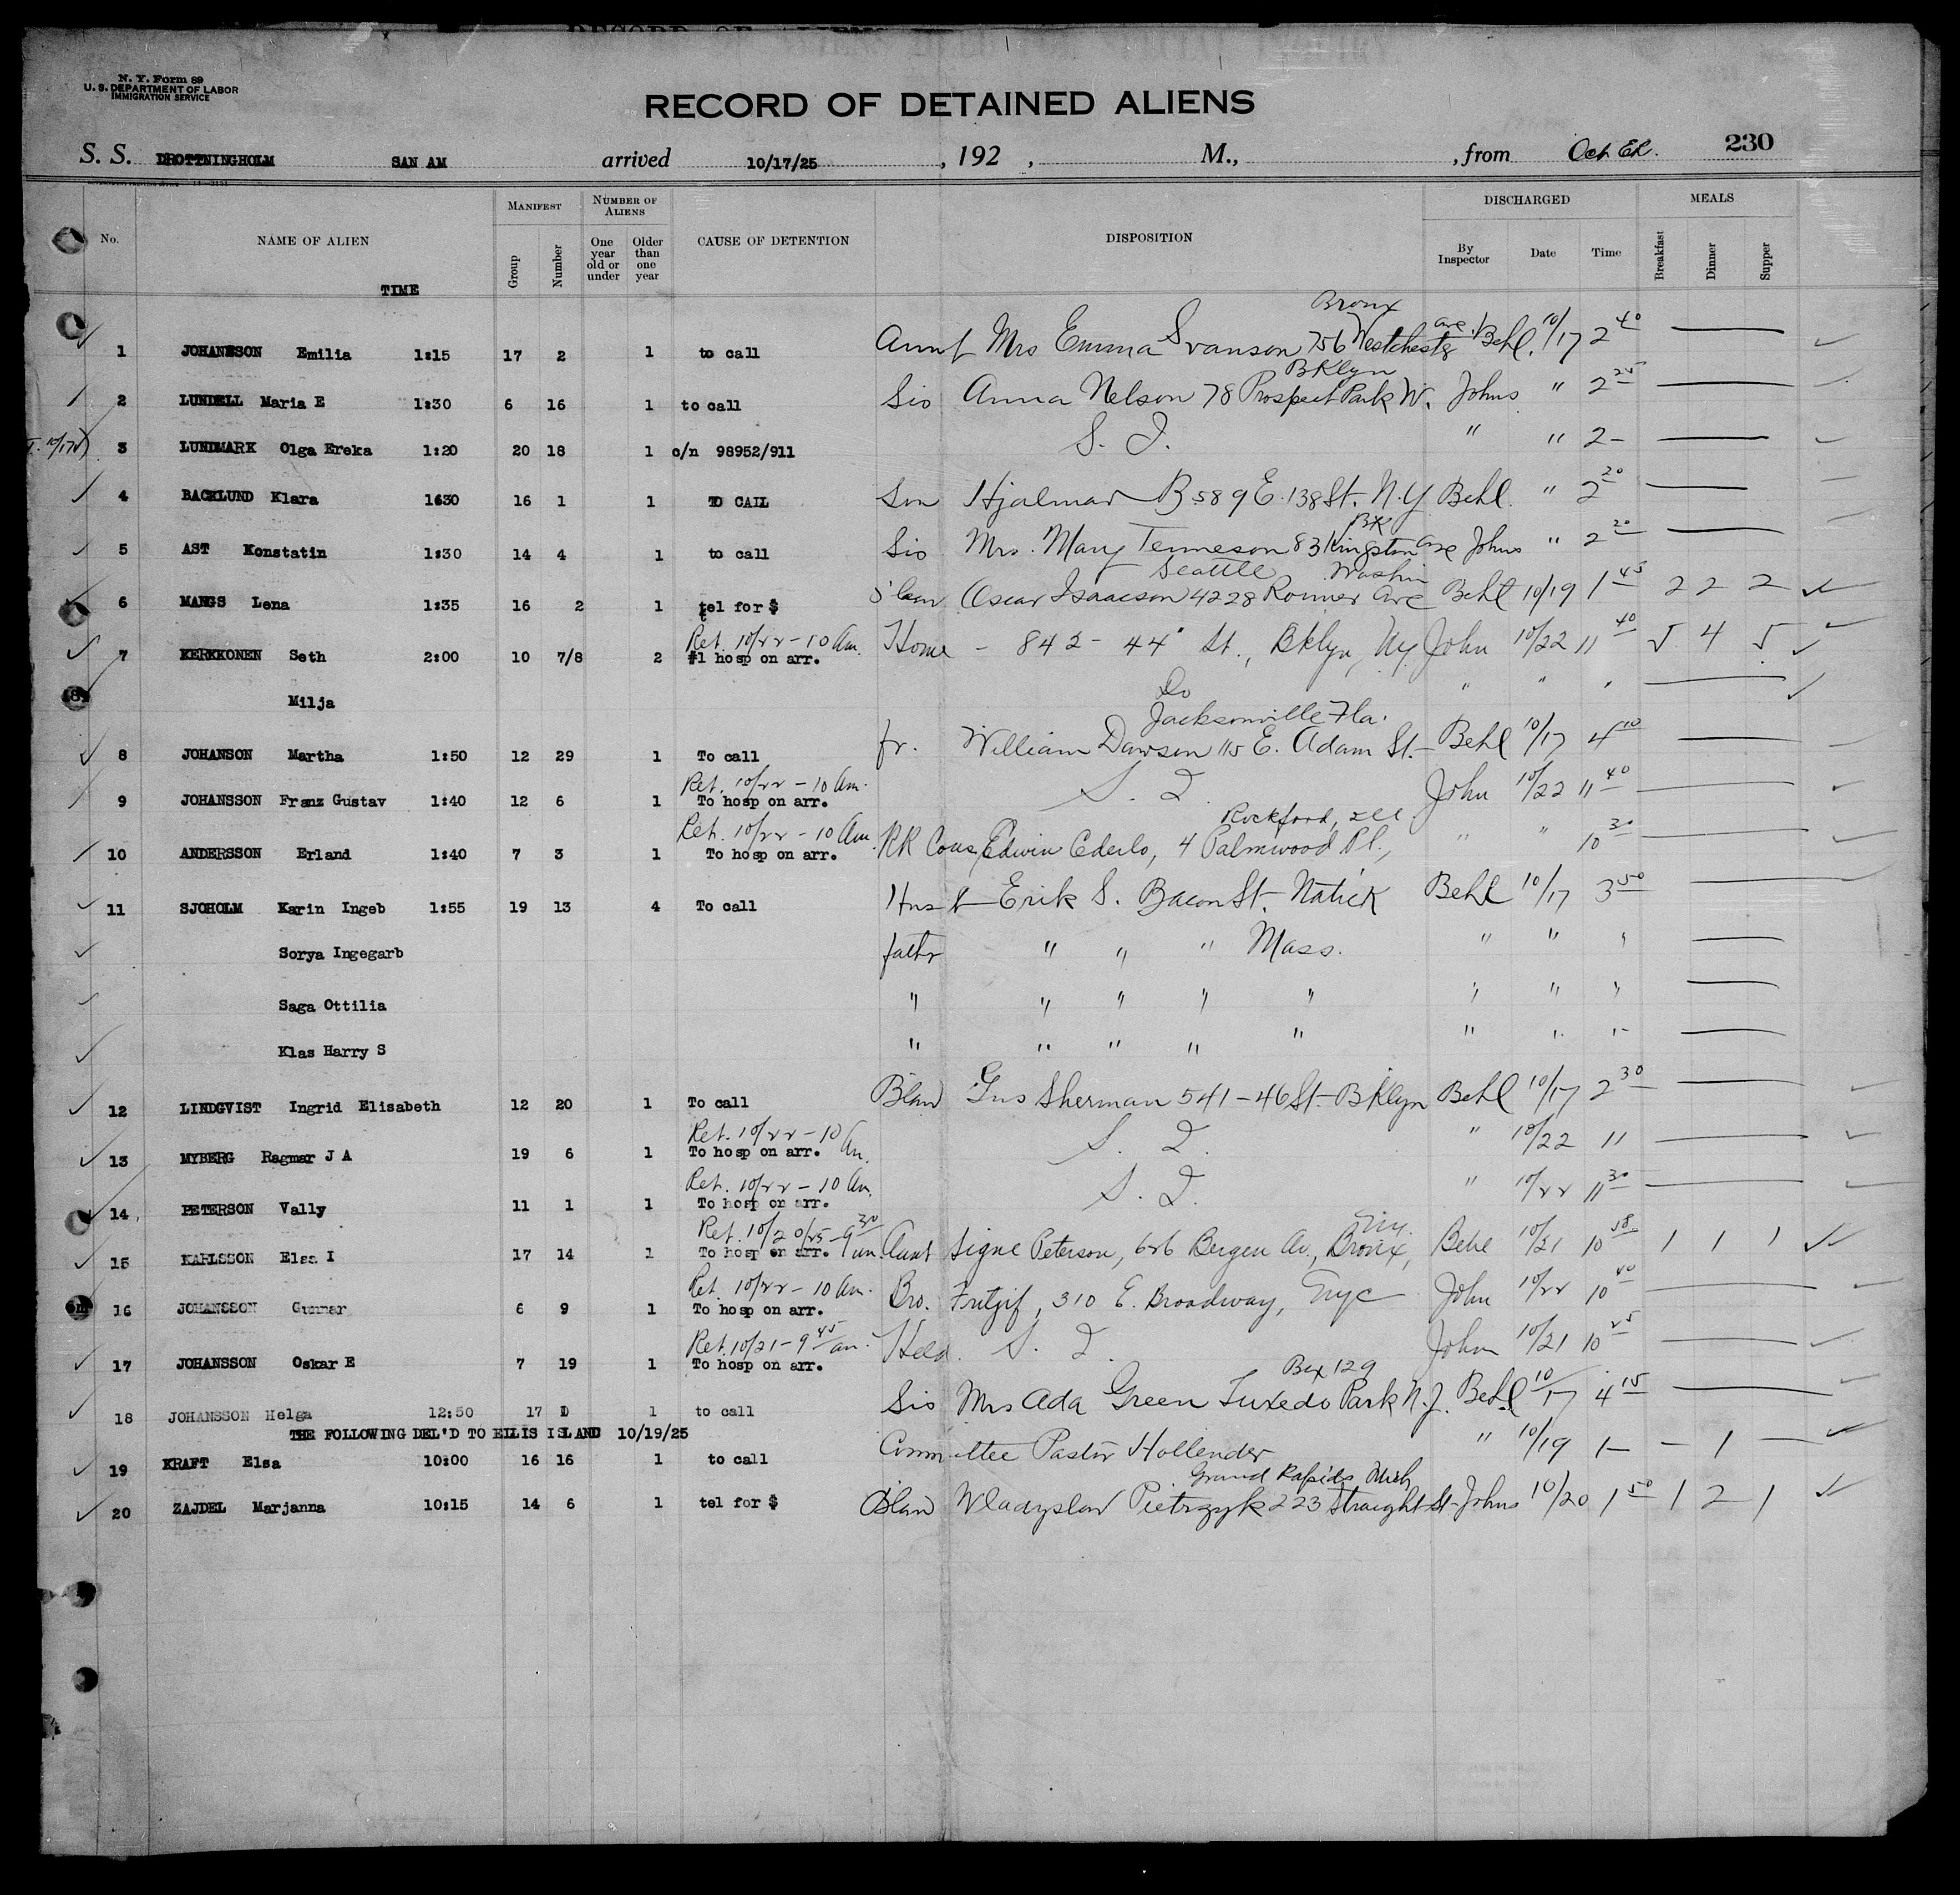 N. Y. Form 89
U. S. DEPARTMENT OF LABOR
IMMIGRATION SERVICE
RECORD OF DETAINED ALIENS
230
S. S. DROTTNINGHOLM SAN AM arrived 10/17/25, 192 , M., from
No. NAME OF ALIEN TIME MANIFEST Group Number NUMBER OF ALIENS One year old or under Older than one year CAUSE OF DETENTION DISPOSITION DISCHARGED By Inspector Date Time MEALS Breakfast Dinner Supper
Bronx
1 JOHANSSON Emilia 1:15 17 2 1 to call Aunt Mrs Emma Swanson 756 Westchester Ave. Behl. 10/17 2 40
Bklyn
2 LUNDELL Maria E 1:30 6 16 1 to call Sis Anna Nelson 78 Prospect Park W. Johns " 2 25
3 LUNDMARK Olga Ereka 1:20 20 18 1 c/n 98952/911 S. I. " " 2-
4 BACKLUND Klara 1630 16 1 1 TO CALL Son Hjalmar B 589 E. 138 St. N.Y Behl. " 2 20
Bk
5 AST Konstatin 1:30 14 4 1 to call Sis Mrs. Mary Tenneson 83 Kingston Ave Johns " 2 20
Seattle Washin
6 MANGS Lena 1:35 16 2 1 tel for $ Oscar Isaacson 4228 Ave Behl 10/19 1 45 2 2 2
Ret. 10/22 - 10 Am.
7 KERKKONEN Seth 2:00 10 7/8 2 #1 hosp on arr. Home - 842 - 44" St., Bklyn, Ny. John 10/22 11 40 5 4 5
Milja Do " " "
Jacksonville Fla.
8 JOHANSON Martha 1:50 12 29 1 To call fr. William Dawson 115 E. Adam St. Behl 10/17 4 10
Ret. 10/22 - 10 Am.
9 JOHANSSON Franz Gustav 1:40 12 6 1 To hosp on arr. S. I. John 10/22 11 40
Ret. 10/22 - 10 Am. Rockford, Ill
10 ANDERSSON Erland 1:40 7 3 1 To hosp on arr. RR Cous, Edwin Cederlo, 4 Palmwood Pl., " " 10 30
11 SJOHOLM Karin Ingeb 1:55 19 13 4 To call Husb Erik S. Bacon St. Natick Behl 10/17 3 50
Sorya Ingegarb father " " " Mass. " " "
Saga Ottilia " " " " " " " "
Klas Harry S " " " " " " " "
12 LINDGVIST Ingrid Elisabeth 12 20 1 To call Blaw Gus Sherman 541 - 46 St. Bklyn Behl 10/17 2 30
Ret. 10/22 - 10 Am.
13 MYBERG Ragmar J A 19 6 1 To hosp on arr. S. I. " 10/22 11
Ret. 10/22 - 10 Am.
14 PETERSON Vally 11 1 1 To hosp on arr. S. I. " 10/22 11 30
Ret. 10/20/25 - 9 30 am.
15 KARLSSON Elsa I 17 14 1 To hosp on arr. Aunt Signe Peterson, 686 Bergen Av., Bronx, Behl 10/21 10 1 1 1
Ret. 10/22 - 10 Am.
16 JOHANSSON Gunnar 6 9 1 To hosp on arr. Bro. Fritjif, 310 E. Broadway, Nyc John 10/22 10 40
Ret. 10/21 - 9 45 am.
17 JOHANSSON Oskar E 7 19 1 To hosp on arr. Held. S. I. John 10/21 10 25
Box 129
18 JOHANSSON Helga 12:50 17 1 1 to call Sis Mrs Ada Green Tuxedo Park N. J. Behl 10/17 4 15
THE FOLLOWING DEL'D TO ELLIS ISLAND 10/19/25
19 KRAFT Elsa 10:00 16 16 1 to call Committee Pastor Hollender " 10/19 1- - 1 -
Grand Rapids Mich
20 ZAJDEL Marjanna 10:15 14 6 1 tel for $ Blaw Wladyslaw Pietrzyk 223 Straight St Johns 10/20 1 50 1 2 1